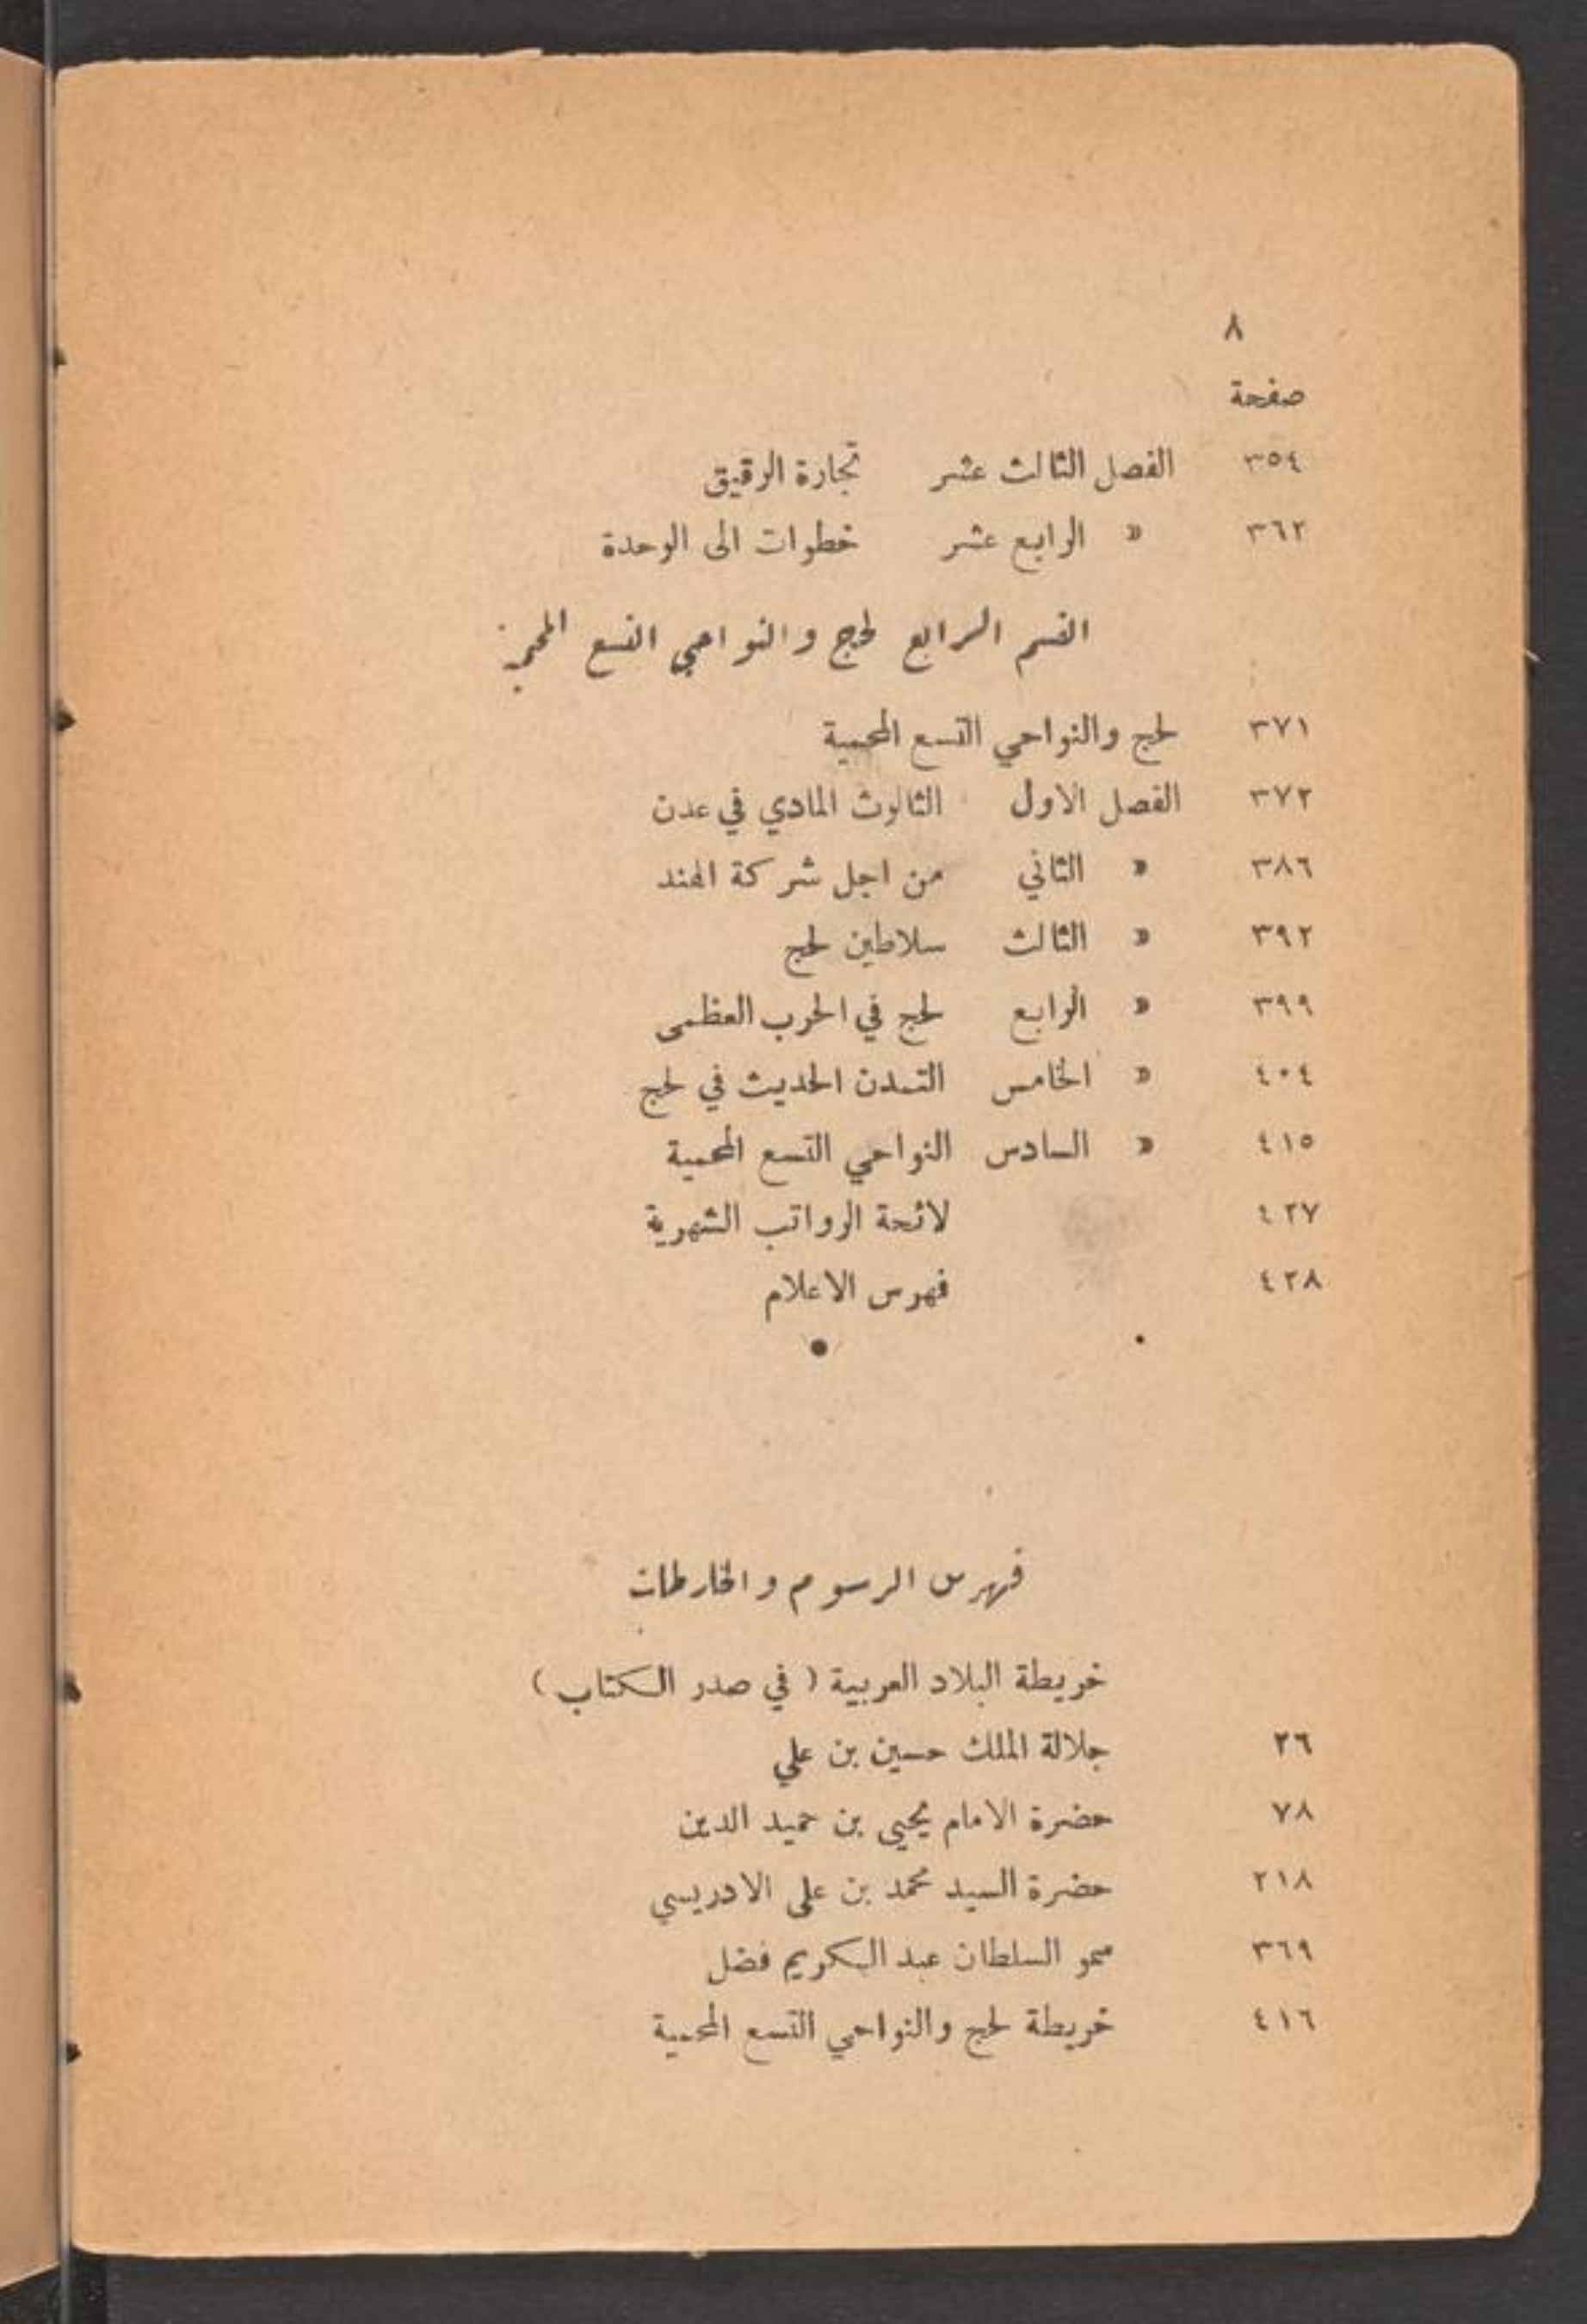 ٨
صفحة
٣٥٤ الفصل الثالث عشر تجارة الرقيق
٣٦٢ « الرابع عشر خطوات الى الوحدة
القسم الرابع لحج والنواحي التسع المحمية
٣٧١ لحج والنواحي التسع المحمية
٣٧٢ الفصل الاول الثالوث المادي في عدن
٣٨٦ « الثاني من اجل شركة الهند
٣٩٢ « الثالث سلاطين لحج
٣٩٩ « الرابع لحج في الحرب العظمى
٤٠٤ « الخامس التمدن الحديث في لحج
٤١٥ « السادس النواحي التسع المحمية
٤٢٧ لائحة الرواتب الشهرية
٤٢٨ فهرس الاعلام
فهرس الرسوم والخارطات
خريطة البلاد العربية ( في صدر الكتاب )
٢٦ جلالة الملك حسين بن علي
٧٨ حضرة الامام يحيى بن حميد الدين
٢١٨ حضرة السيد محمد بن علي الادريسي
٣٦٩ سمو السلطان عبد الكريم فضل
٤١٦ خريطة لحج والنواحي التسع المحمية